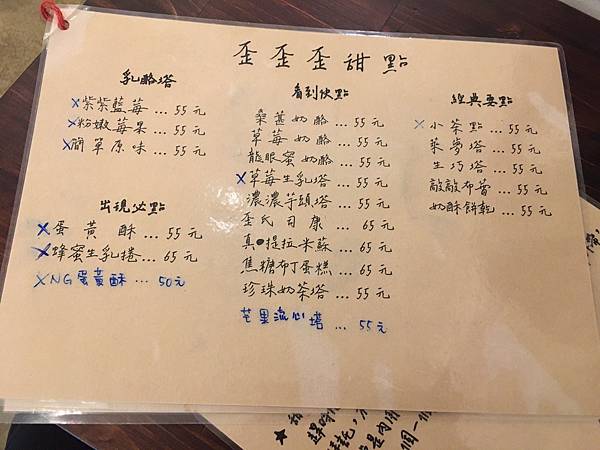 歪歪歪甜點
乳酪塔
X紫紫藍莓 ... 55元
X粉嫩莓果 ... 55元
X簡單原味 ... 55元
出現必點
X蛋黃酥 ... 55元
X蜂蜜生乳捲 ... 65元
XNG蛋黃酥 ... 50元
看到快點
桑葚奶酪 ... 55元
草莓奶酪 ... 55元
龍眼蜜奶酪 ... 55元
X草莓生乳塔 ... 55元
濃濃芋頭塔 ... 55元
歪氏司康 ... 65元
真●提拉米蘇 ... 65元
焦糖布丁蛋糕 ... 65元
珍珠奶茶塔 ... 55元
芒果流心塔 ... 55元
經典要點
X小茶點 ... 55元
萊麥塔 ... 55元
生巧塔 ... 55元
敲敲布蕾 ... 55元
奶酥餅乾 ... 55元